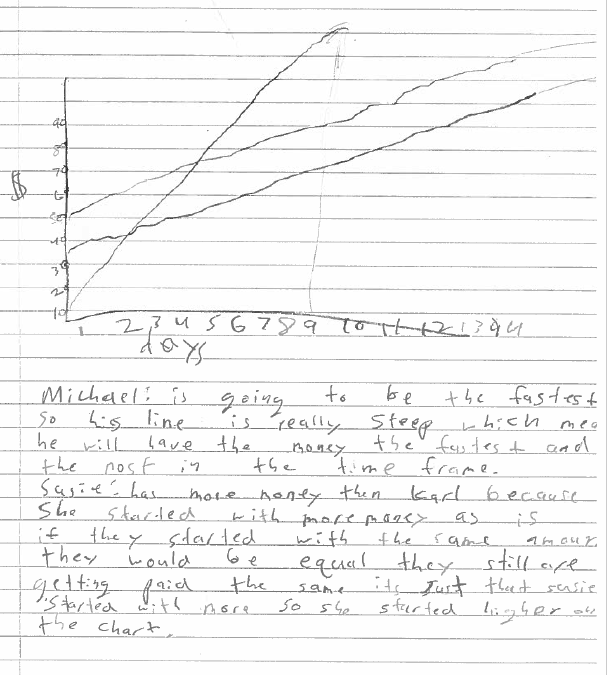 90
80
70
60
$
50
40
30
20
10
1 2 3 4 5 6 7 8 9 10 11 12 13 14
days
Michael: is going to be the fastest
so his line is really steep which mea
he will have the money the fastest and
the most in the time frame.
Susie: has more money then Karl because
she started with more money as is
if they started with the same amoun
they would be equal they still are
getting paid the same its Just that susie
started with more so she started higher on
the chart.